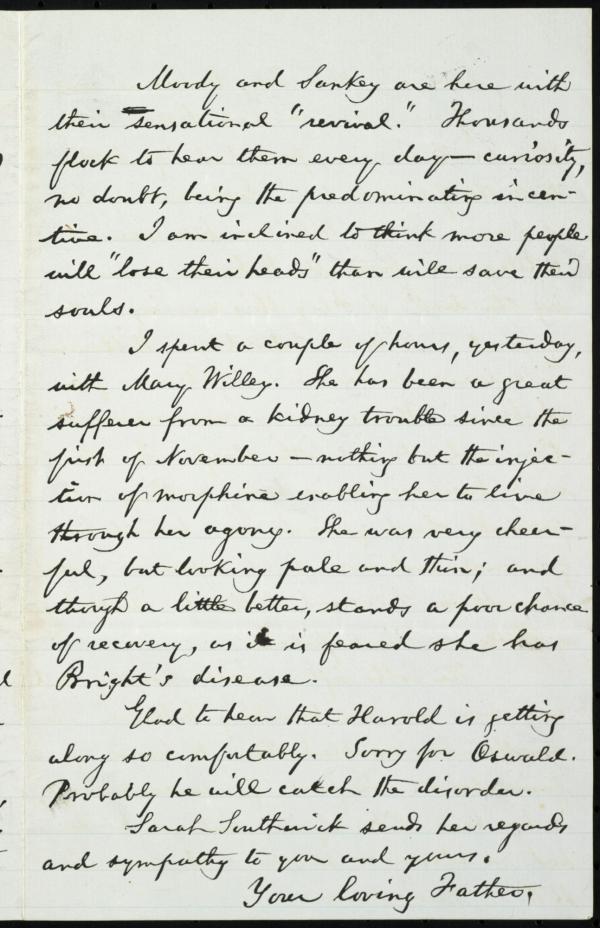 Moody and Sankey are here with
their sensational "revival." Thousands
flock to hear them every day — curiosity,
no doubt, being the predominating incen-
tive. I am inclined to think more people
will "lose their heads" than will save their
souls.
I spent a couple of hours, yesterday,
with Mary Willey. She has been a great
sufferer from a kidney trouble since the
first of November — nothing but the injec-
tion of morphine enabling her to live
through her agony. She was very cheer-
ful, but looking pale and thin; and
though a little better, stands a poor chance
of recovery, as it is feared she has
Bright's disease.
Glad to hear that Harold is getting
along so comfortably. Sorry for Oswald.
Probably he will catch the disorder.
Sarah Southwick sends her regards
and sympathy to you and yours.
Your loving Father,